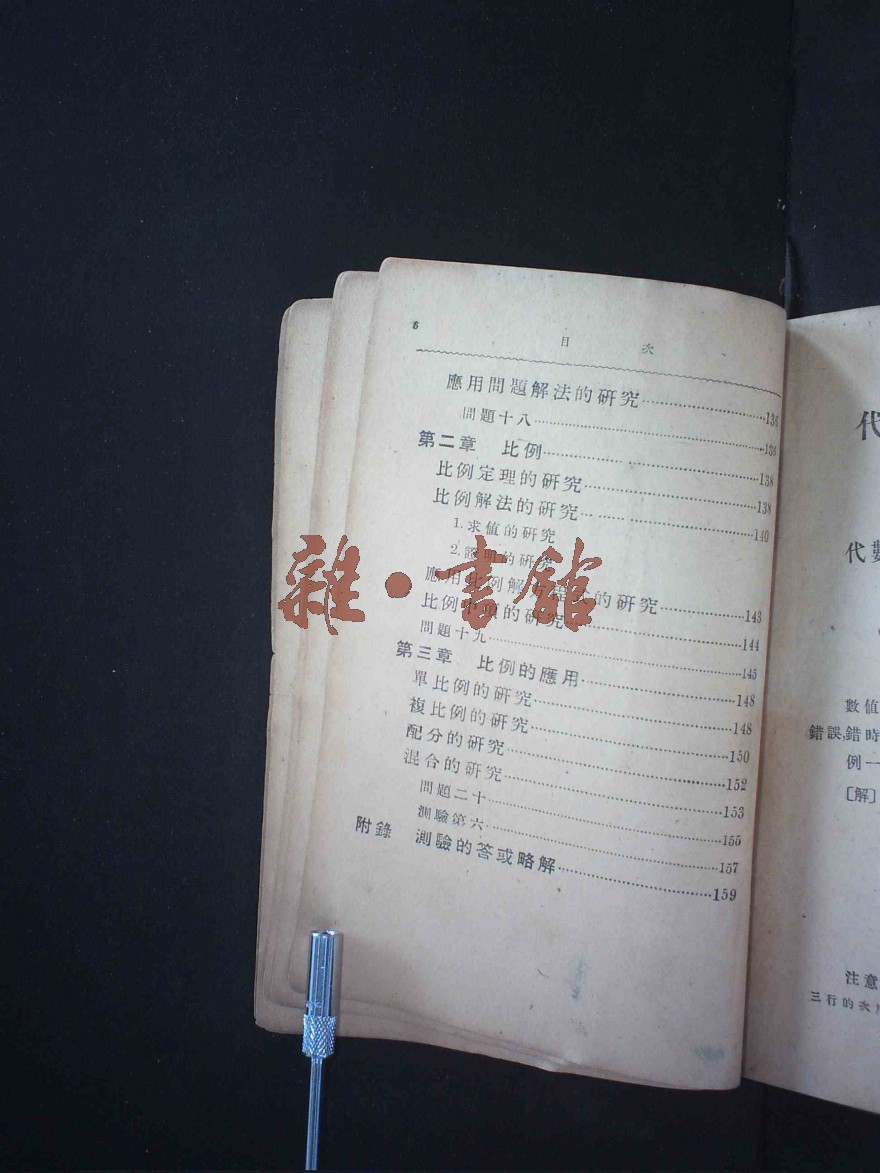 6
目 次
應用問題解法的研究……136
問題十八……136
第二章 比例……138
比例定理的研究……138
比例解法的研究……140
1.求值的研究
2.證明的研究
應用比例解方程式的研究……143
比例中項的研究……144
問題十九……145
第三章 比例的應用……148
單比例的研究……148
複比例的研究……150
配分的研究……152
混合的研究……153
問題二十……155
測驗第六……157
附錄 測驗的答或略解……159
雜·書館
代
代數
數值
錯誤,錯時
例一
〔解〕
注意
三行的次